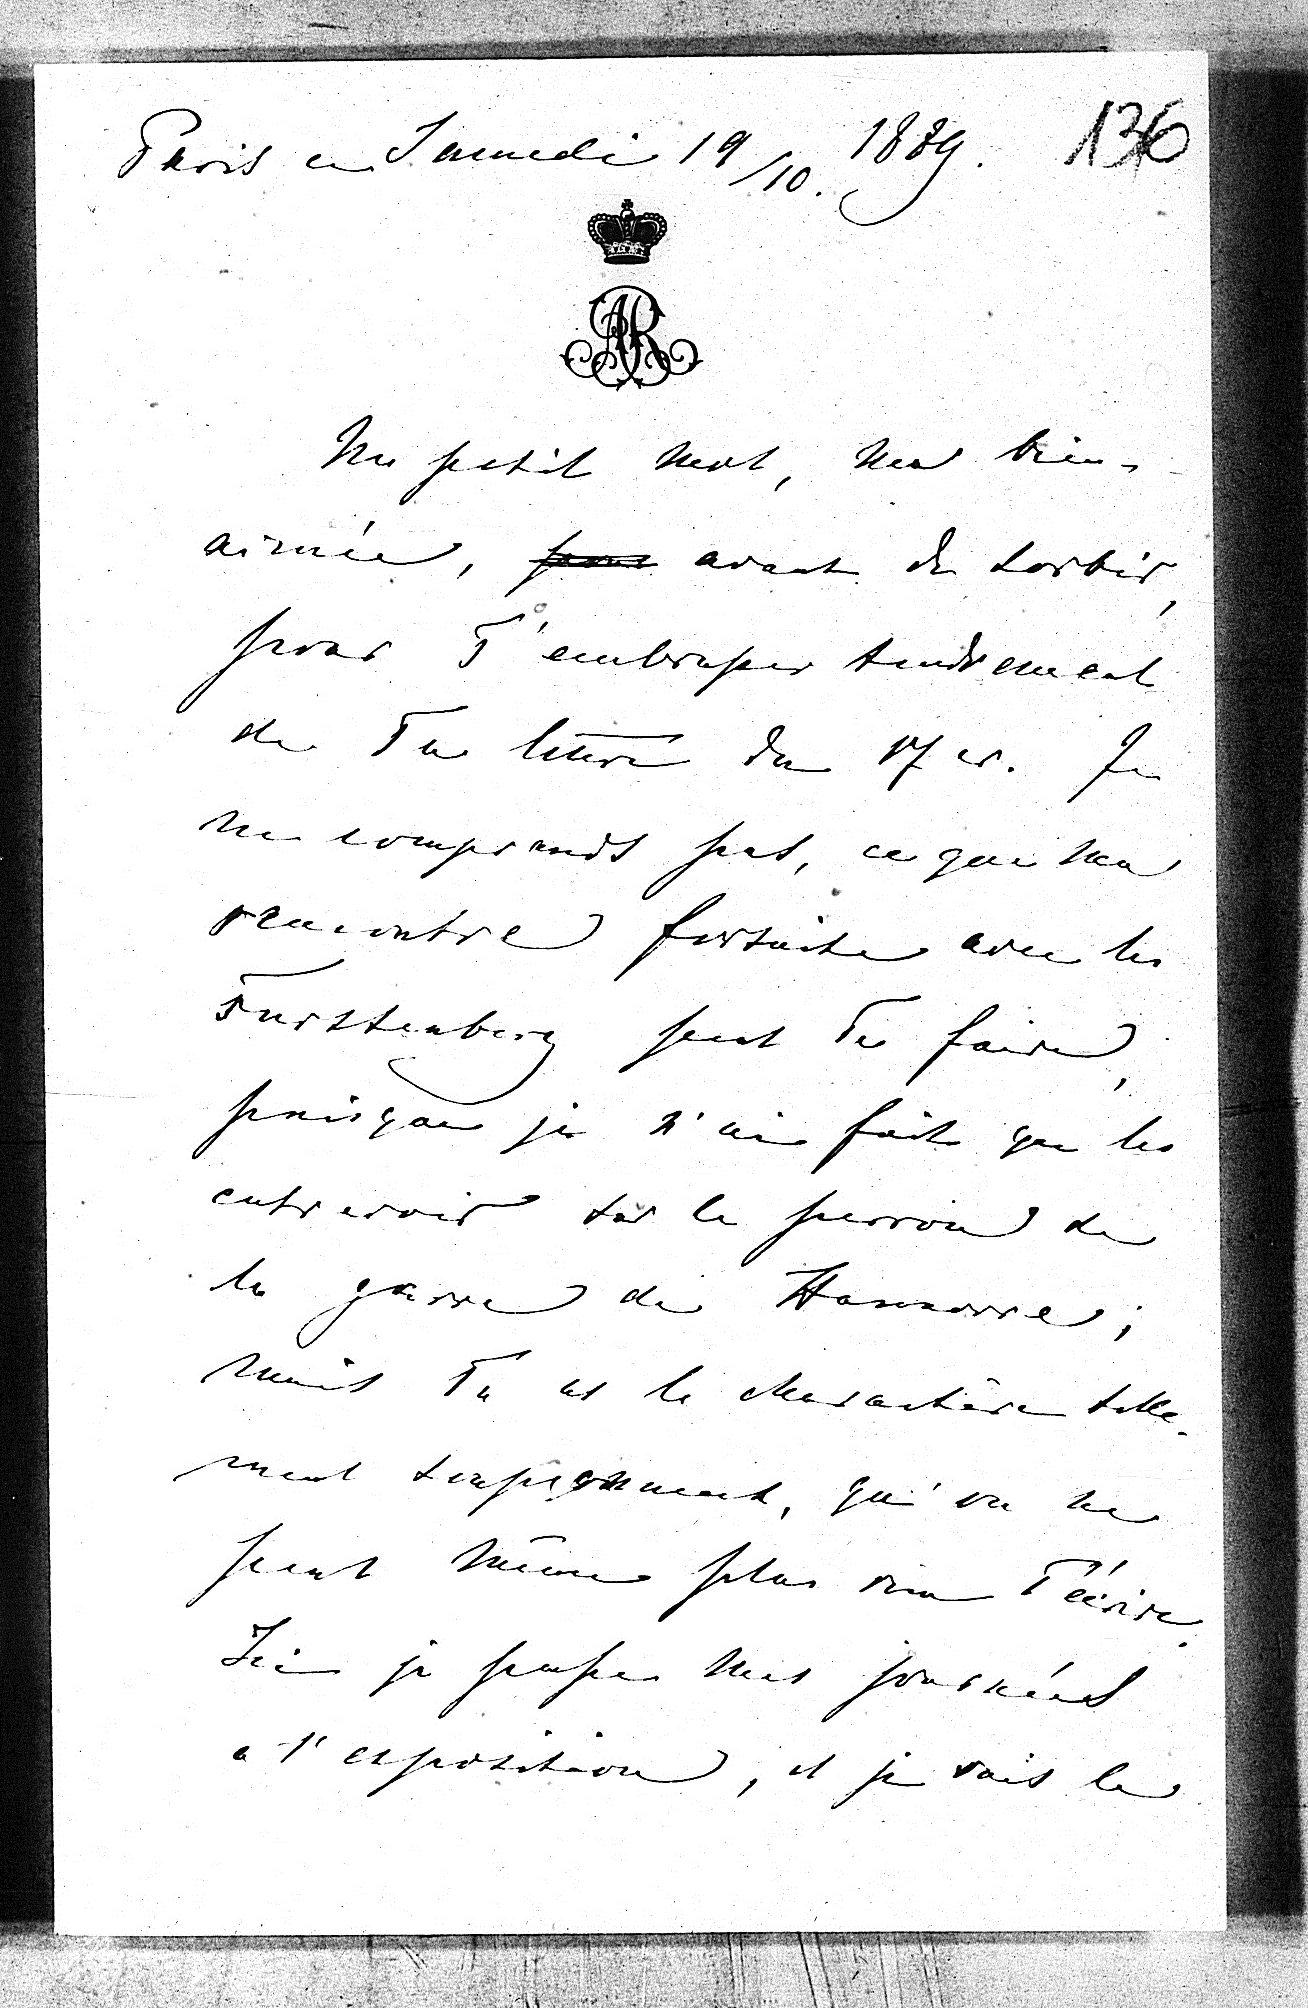 Paris ce Samedi 19/10. 1889.
136
AR
Un petit mot, ma bien-
aimée, pour avant de sortir,
pour T'embrasser tendrement
de Ta lettre du 17 cr. Je
ne comprends pas, ce que ma
rencontre fortuite avec les
Furstenberg peut Te faire,
puisque je n'ai fait que les
entrevoir sur le perron de
la garre de Hannovre;
mais Tu as le charactère telle-
ment soupçonneux, qu'on ne
peut même plus rien T'écrire.
Ici je passe mes journées
a l'exposition, et je vais le